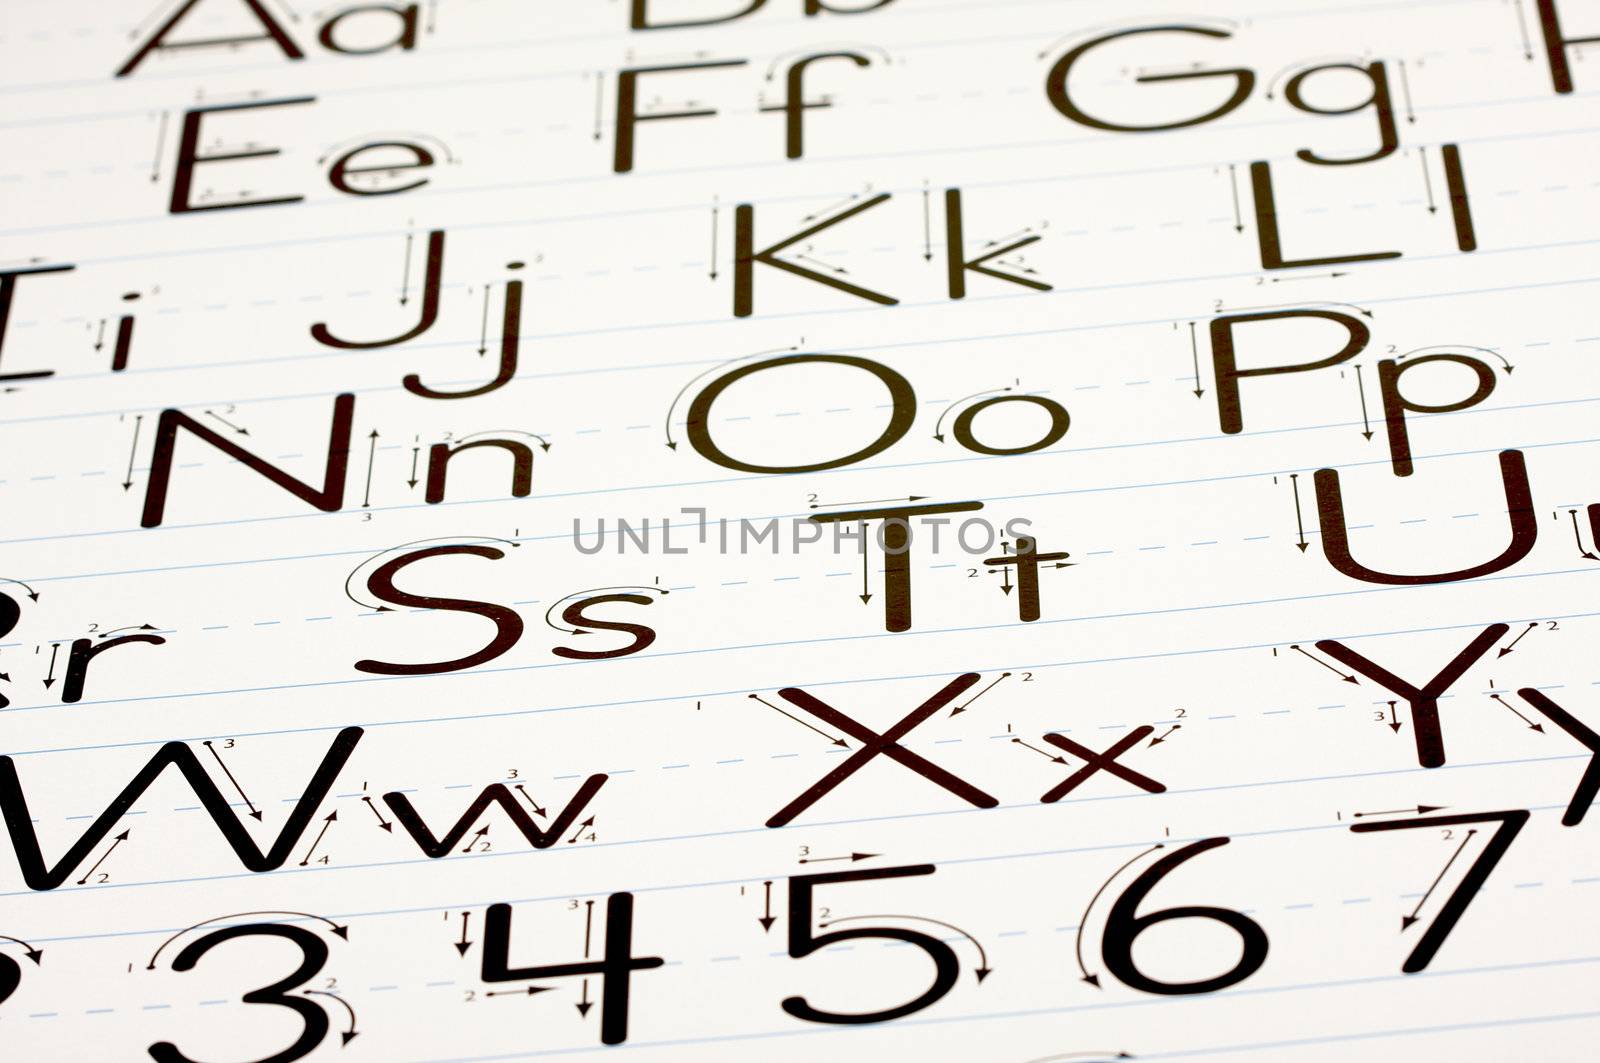 Aa Bb
Ee Ff Gg H
Ii Jj Kk Ll
Nn Oo Pp
Rr Ss Tt Uu
Ww Xx Yy
2 3 4 5 6 7
UNLIMPHOTOS